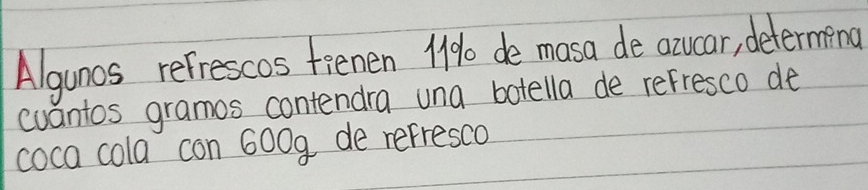 Algunos refrescos tienen 11% de masa de azucar, determina
cuántos gramos contendra una botella de refresco de
coca cola con 600g de refresco